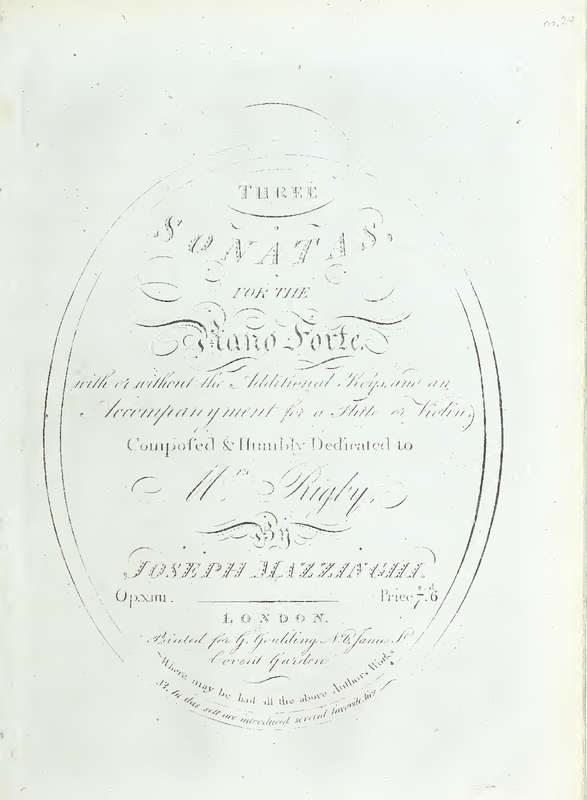 no. 24
THREE
SONATAS,
FOR THE
Piano Forte.
with or without the Additional Keys, and an
Accompanyment for a Flute or Violin,
Compoſed & Humbly Dedicated to
Mrs Rigby,
By
JOSEPH MAZZINGHI.
Op. XIII. Price 7s. 6d
LONDON.
Printed for G. Goulding James St
Covent Garden
Where may be had all the above Authors Works
NB. In this sett are introduced several favorite Airs